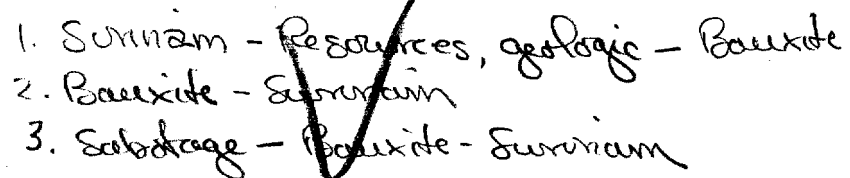 1. Surinam - Resources, geologic - Bauxite
2. Bauxite - Surinam
3. Sabotage - Bauxite - Surinam